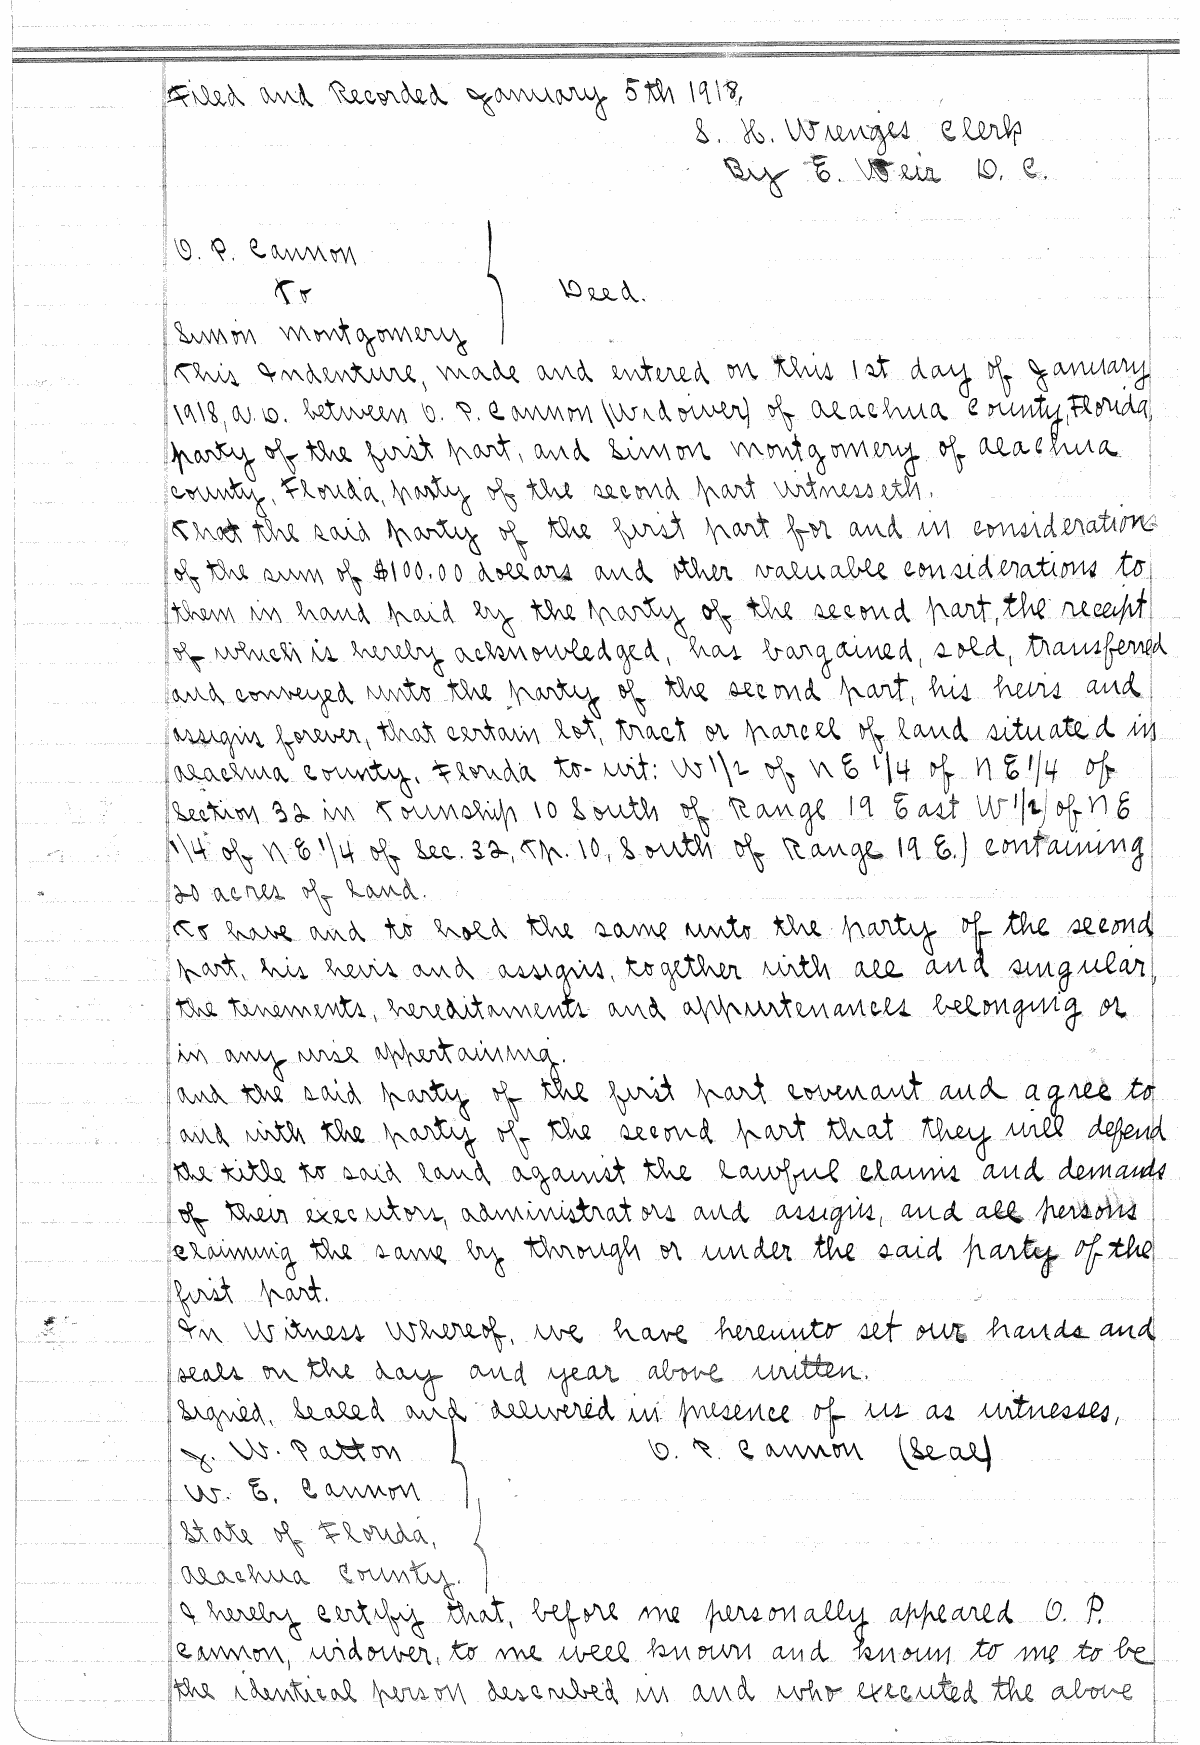 Filed and Recorded January 5th 1918,
S. H. Wienges Clerk
By E. Weir D. C.
O. P. Cannon
To
Deed.
Simon Montgomery
This Indenture, made and entered on this 1st day of January
1918, A.D. between O. P. Cannon (Widower) of Alachua County, Florida,
party of the first part, and Simon Montgomery of Alachua
County, Florida, party of the second part witnesseth.
That the said party of the first part for and in consideration
of the sum of $100.00 dollars and other valuable considerations to
them in hand paid by the party of the second part, the receipt
of which is hereby acknowledged, has bargained, sold, transferred
and conveyed unto the party of the second part, his heirs and
assigns forever, that certain lot, tract or parcel of land situated in
Alachua County, Florida to-wit: W 1/2 of NE 1/4 of NE 1/4 of
Section 32 in Township 10 South of Range 19 East W 1/2) of NE
1/4 of NE 1/4 of Sec. 32, Tp. 10, South of Range 19 E.) containing
20 acres of land.
To have and to hold the same unto the party of the second
part, his heirs and assigns, together with all and singular,
the tenements, hereditaments and appurtenances belonging or
in any wise appertaining.
And the said party of the first part covenant and agree to
and with the party of the second part that they will defend
the title to said land against the lawful claims and demands
of their executors, administrators and assigns, and all persons
claiming the same by through or under the said party of the
first part.
In Witness Whereof, we have hereunto set our hands and
seals on the day and year above written.
Signed, Sealed and delivered in presence of us as witnesses,
J. W. Patton O. P. Cannon (Seal)
W. E. Cannon
State of Florida,
Alachua County.
I hereby certify that, before me personally appeared O. P.
Cannon, widower, to me well known and known to me to be
the identical person described in and who executed the above